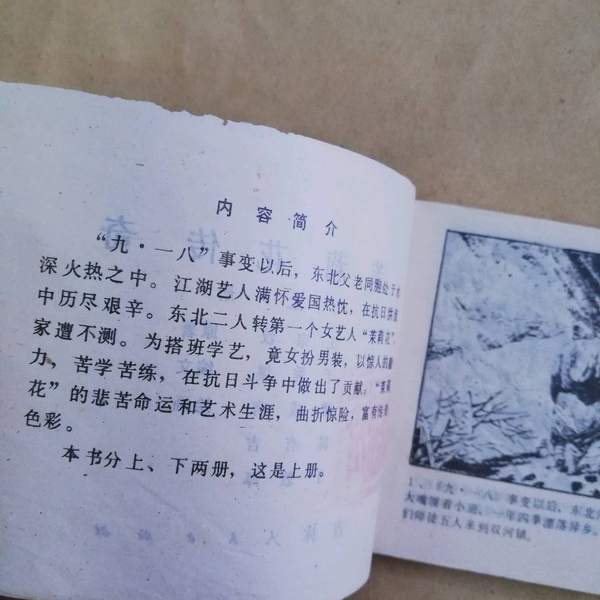 内容简介
“九·一八”事变以后，东北父老同胞处于水
深火热之中。江湖艺人满怀爱国热忱，在抗日
中历尽艰辛。东北二人转第一个女艺人“茉莉花”
家遭不测。为搭班学艺，竟女扮男装，以惊人的
力，苦学苦练，在抗日斗争中做出了贡献。“茉莉
花”的悲苦命运和艺术生涯，曲折惊险，富有传奇
色彩。
本书分上、下两册，这是上册。
1．“九·一八”事变以后，东北
大嘴领着小班，一年四季漂落异乡。
们师徒五人来到双河镇。